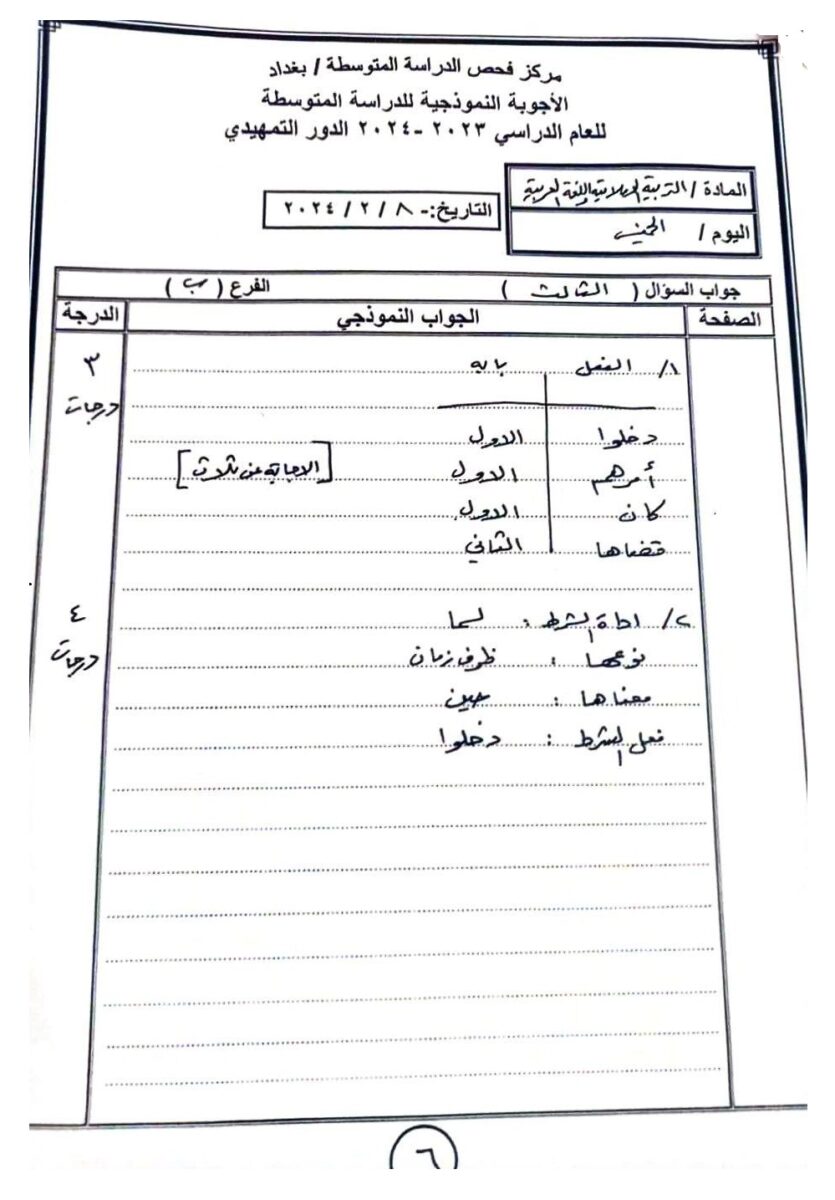 مركز فحص الدراسة المتوسطة / بغداد
الأجوبة النموذجية للدراسة المتوسطة
للعام الدراسي ٢٠٢٣ -٢٠٢٤ الدور التمهيدي
المادة / التربية الاسلامية واللغة العربية
التاريخ:- ٨ / ٢ / ٢٠٢٤
اليوم / الخميس
جواب السؤال ( الثالث ) الفرع ( ب )
الصفحة الجواب النموذجي الدرجة
١/ الفعل بابه ٣
درجات
دخلوا الاول
أمرهم الاول [الاجابة عن ثلاث]
كان الاول
قضاها الثاني
٢/ اداة الشرط : لما ٤
نوعها : ظرف زمان درجات
معناها : حين
فعل الشرط : دخلوا
٦